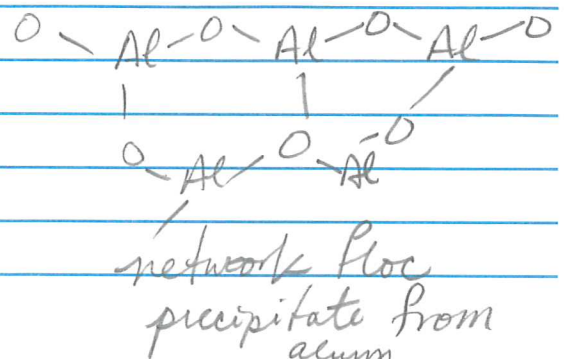 O Al O Al O Al O
O Al O Al O
network floc
precipitate from
alum